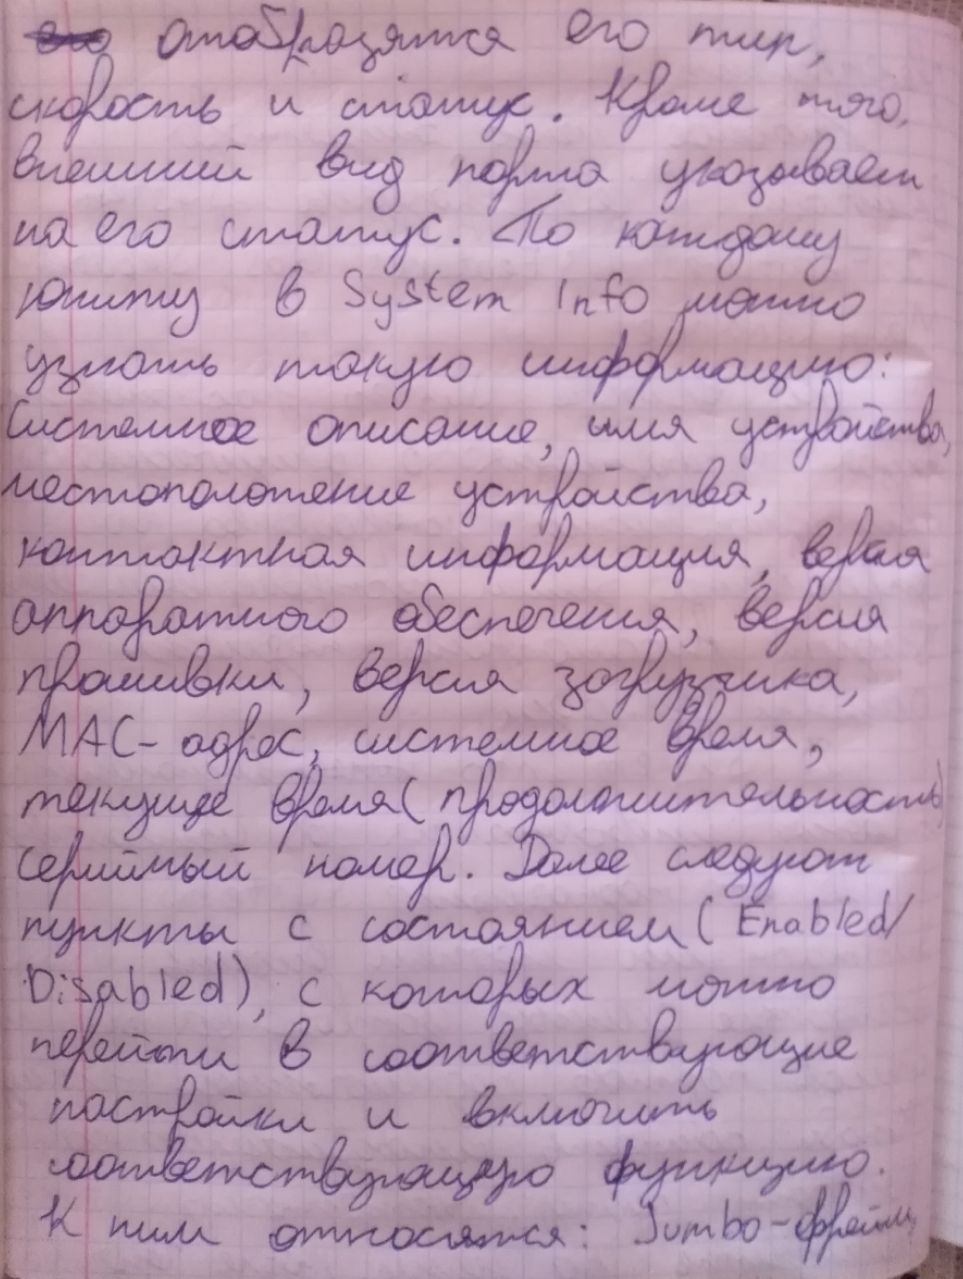 отобразятся его тип,
скорость и статус. Кроме того,
внешний вид порта указывает
на его статус. По каждому
юниту в System Info можно
узнать такую информацию:
Системное описание, имя устройства,
местоположение устройства,
контактная информация, версия
аппаратного обеспечения, версия
прошивки, версия загрузчика,
MAC-адрес, системное время,
текущее время (продолжительность)
серийный номер. Далее следуют
пункты с состоянием (Enabled/
Disabled), с которых можно
перейти в соответствующие
настройки и включить
соответствующую функцию.
К ним относятся: Jumbo-фреймы,